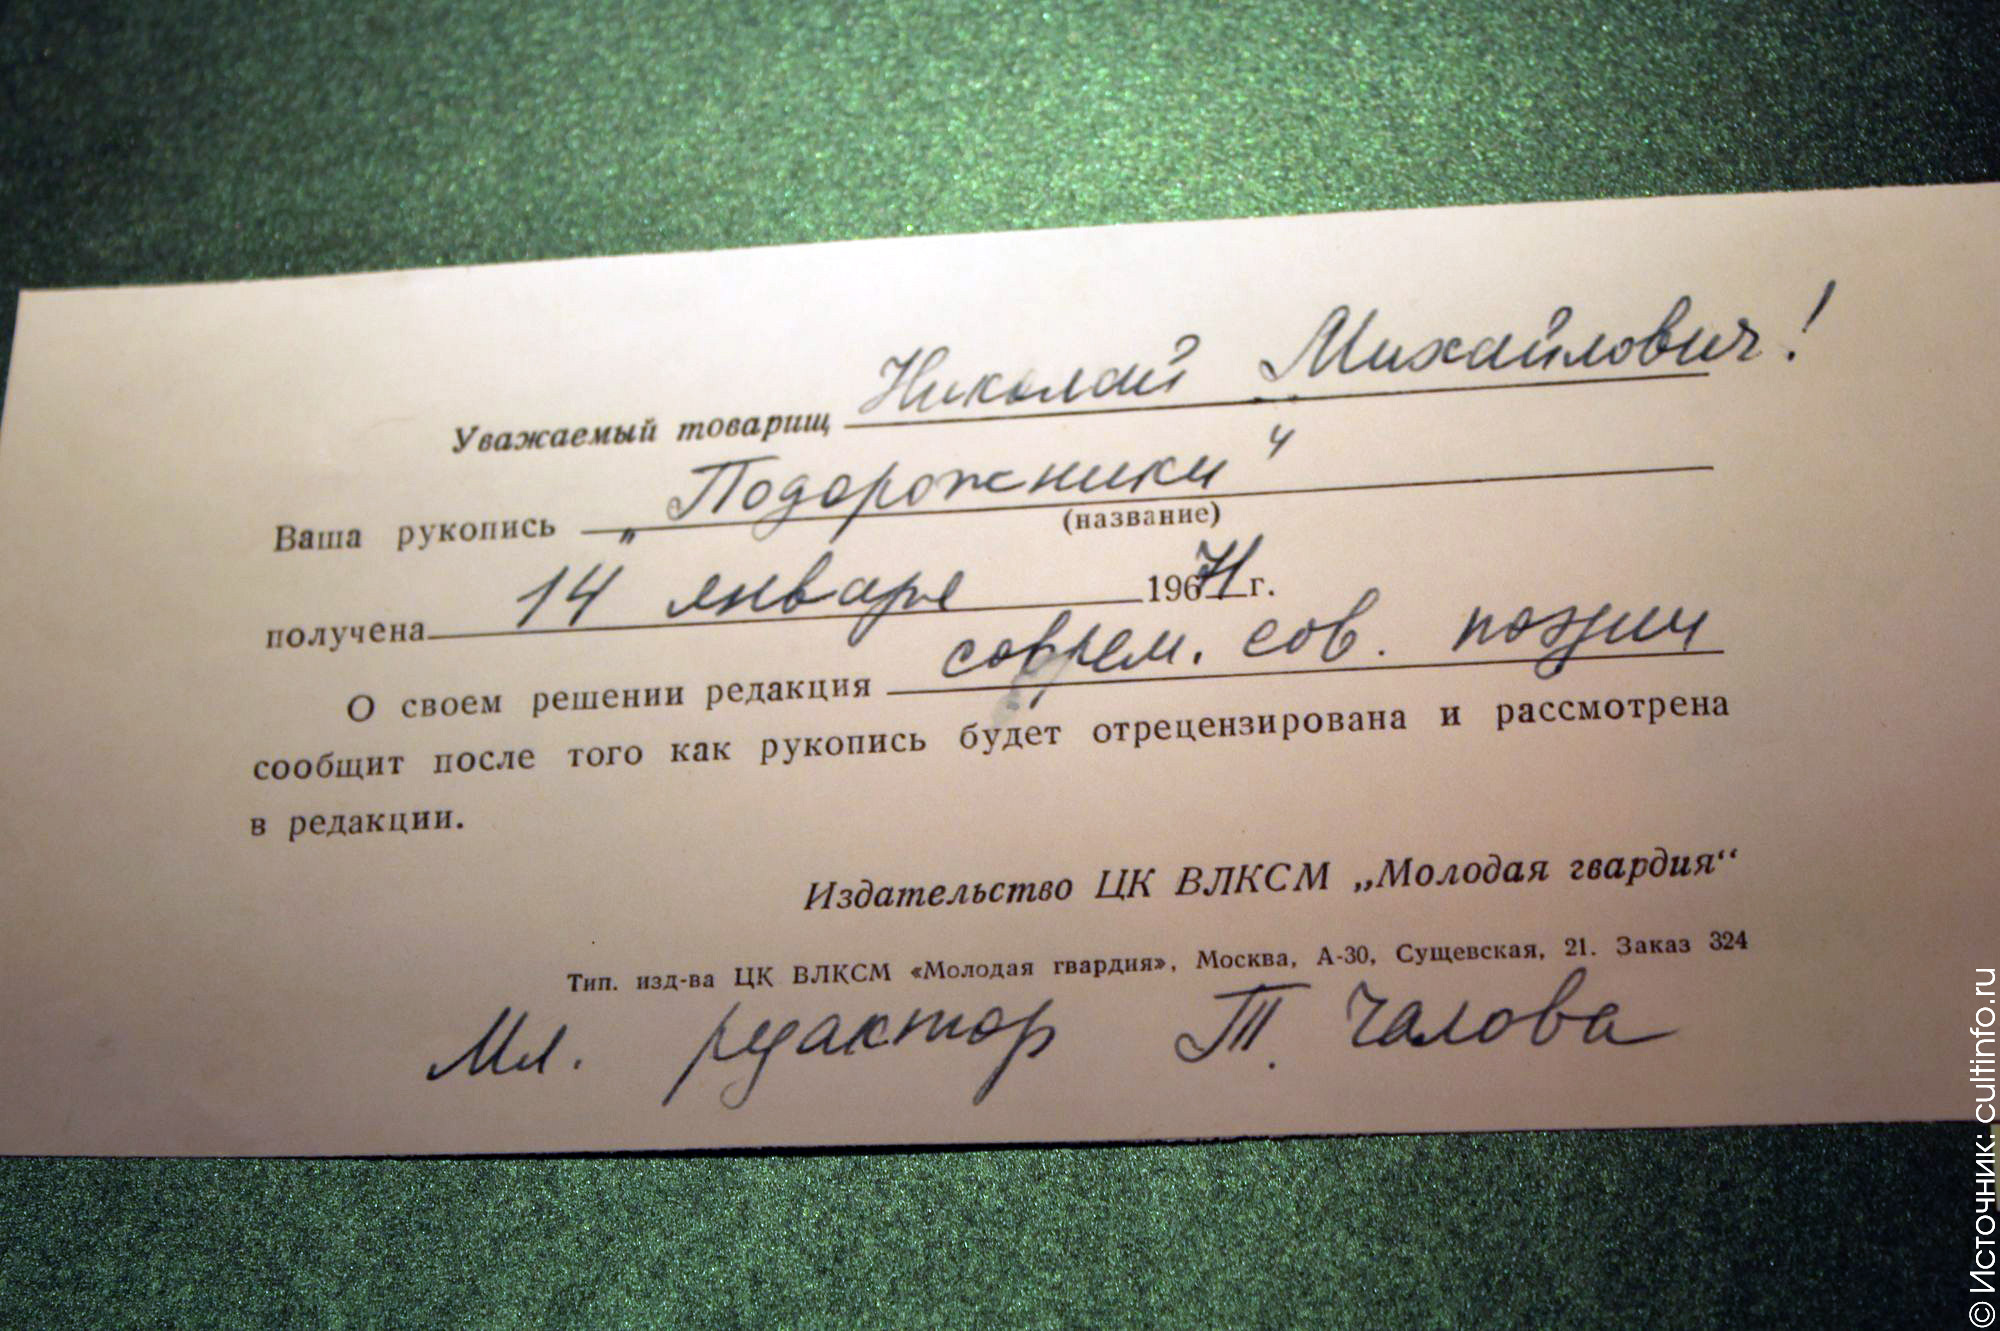 Уважаемый товарищ Николай Михайлович!
Ваша рукопись „Подорожники“
(название)
получена 14 января 1971 г.
О своем решении редакция соврем. сов. поэзии
сообщит после того как рукопись будет отрецензирована и рассмотрена
в редакции.
Издательство ЦК ВЛКСМ „Молодая гвардия“
Тип. изд-ва ЦК ВЛКСМ «Молодая гвардия», Москва, А-30, Сущевская, 21. Заказ 324
Мл. редактор Т. Чалова
© Источник: cultinfo.ru